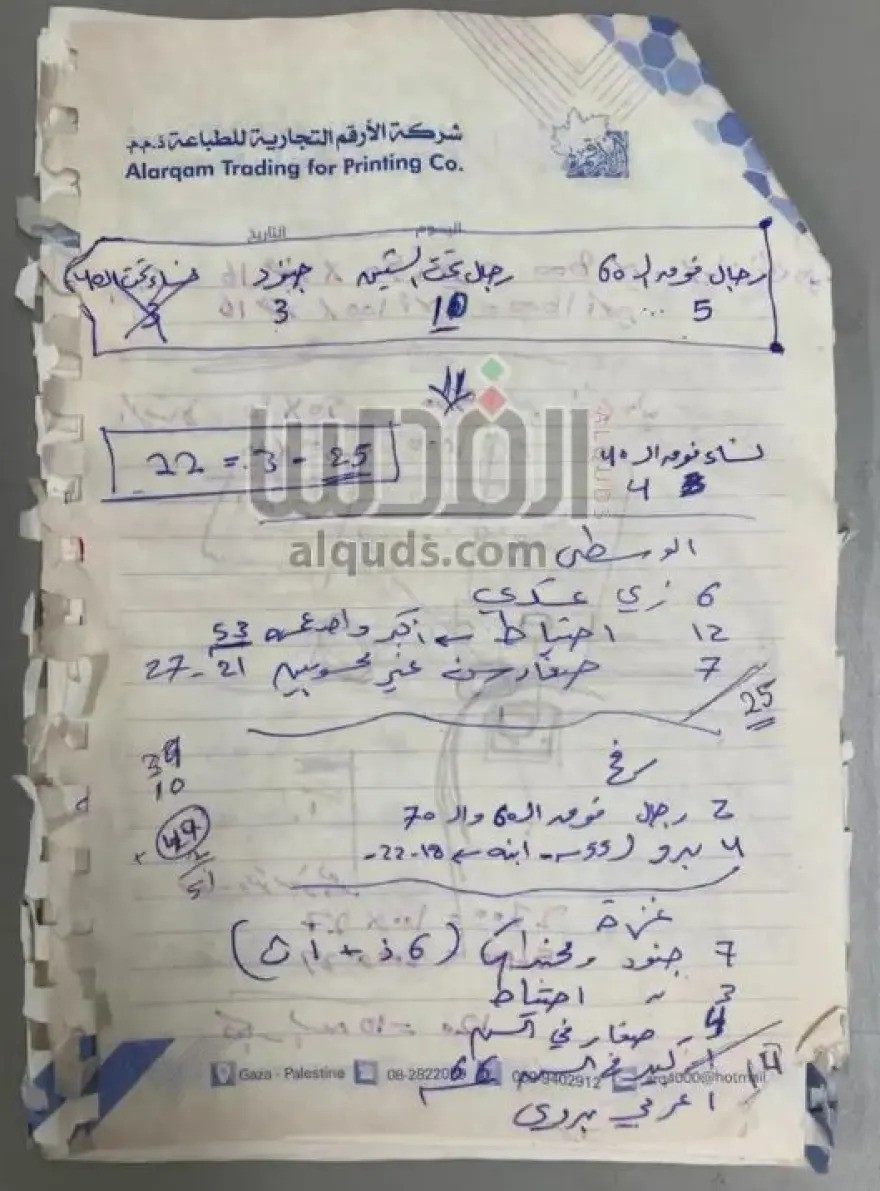 شركة الأرقم التجارية للطباعة ذ.م.م
Alarqam Trading for Printing Co.
اليوم التاريخ
رجال فوق الـ 60 رجال تحت الستين جنود نساء تحت الـ 40
5 ... 10 3 3
القدس
ALQUDS
نساء فوق الـ 40
4
22 = 3 - 25
alquds.com
الوسطى
6 زي عسكري
12 احتياط ← أكبر واحد عمره 53
7 صغار سن غير محسوبين 21 - 27
25
39
10
49
51
رفح
2 رجال فوق الـ 60 والـ 70
4 بدو (55 - ابنه ← 18-22-
غزة
7 جنود ومجندات (6 ذ + 1 ث)
3 " احتياط
4 صغار في السن
1 كبير في السن 66
14
1 عربي بدوي
Gaza - Palestine 08-28220 9402912 arq4000@hotmail